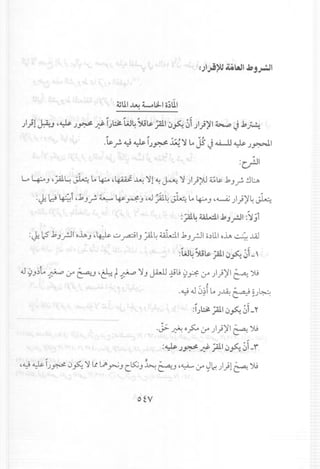 الشروط العامّة للإقرار:
المادّة الخامسة بعد المائة
يشترط في صحة الإقرار أن يكون المقرّ عاقلاً بالغاً مختاراً غير محجور عليه، ويقبل إقرار
المحجور عليه للسفه في كُلّ ما لا يُعَدّ محجوراً عليه فيه شرعاً.
الشرح:
هناك شروط عامّة للإقرار لا يعمل به إلا بعد تحققها، منها ما يتعلّق بالمقرّ، ومنها ما
يتعلّق بالإقرار نفسه، ومنها ما يتعلّق بالمقرّ له، ومجموعها سبعة شروط، أبيّنها فيما يلي:
أولاً: الشروط المتعلقة بالمقرّ:
لقد بيّنت هذه المادة الشروط المتعلّقة بالمقرّ واقتصرت عليها، وهذه الشروط كما يلي:
١- أن يكون المقرّ عاقلاً بالغاً:
فلا يصحّ الإقرار من مجنونٍ فاقدٍ للعقل ولا صغيرٍ لم يبلغ، ويصحّ من صغيرٍ مأذونٍ له
بتجارة فيصحّ بقدر ما أُذِن له فيه.
٢- أن يكون المقرّ مختاراً:
فلا يصحّ الإقرار من مكره بغير حقّ.
٣- أن يكون المقرّ غير محجور عليه:
فلا يصحّ إقرار بمالٍ من سفيه، ويصحّ بحدّ ونكاح ونحوهما مما لا يكون محجوراً عليه فيه،
٥٤٧